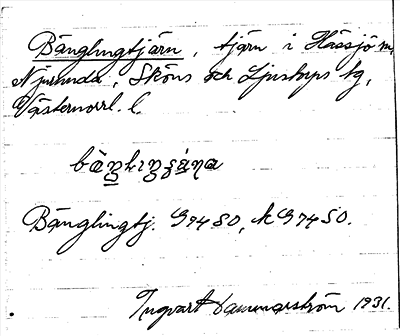 Bänglingtjärn, tjärn i Hässjö sn,
Njurunda, Sköns och Ljustorps tg,
Västernorrl. l.
Bänglingtj. G74 SO, k G74 SO.
Ingvart Dammarström 1931.